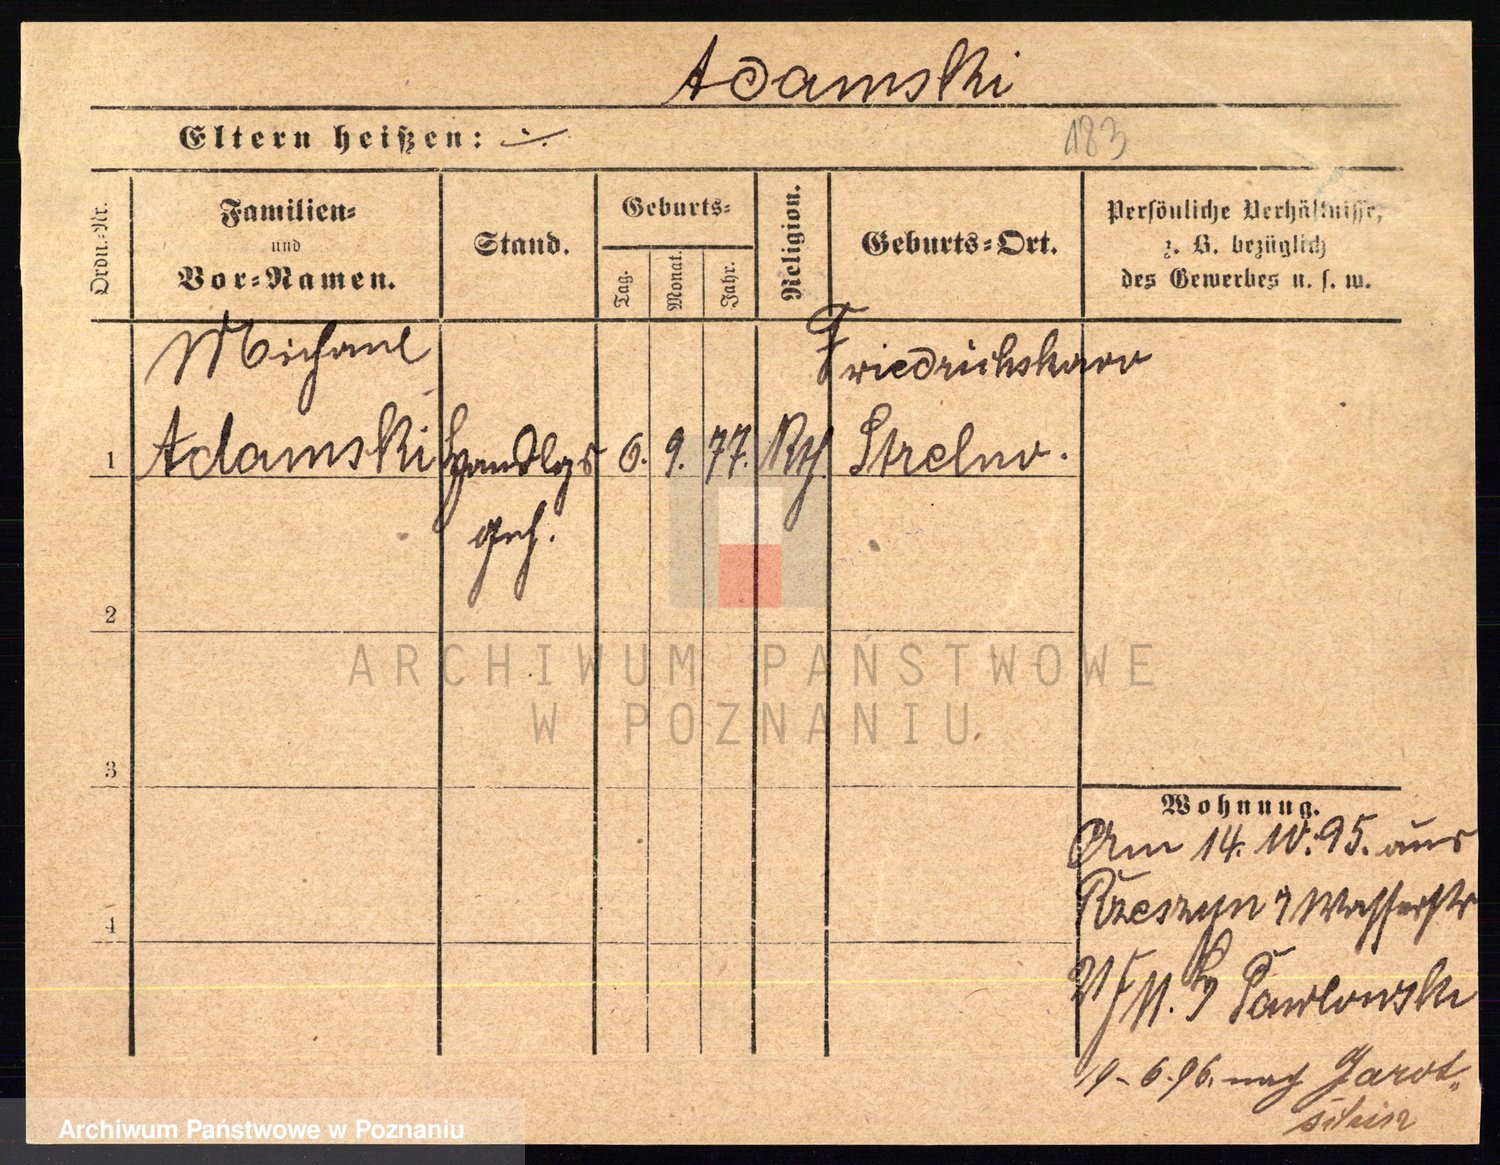 Adamski
Eltern heißen: ·/·
183
Ordn.-Nr.
Familien-
und
Vor-Namen.
Stand.
Geburts-
Tag.
Monat.
Jahr.
Religion.
Geburts-Ort.
Persönliche Verhältnisse,
z. B. bezüglich
des Gewerbes u. s. w.
Michael
Friedrichskron
1 Adamski Handlgs 6. 9. 77. Kth. Strelno.
geh.
2
3
4
ARCHIWUM PAŃSTWOWE
W POZNANIU
Wohnung.
Am 14. IV. 95. aus
Rzeszyn Wasserstr
Pawlowski
6. 96. nach Jarot-
schin
Archiwum Państwowe w Poznaniu